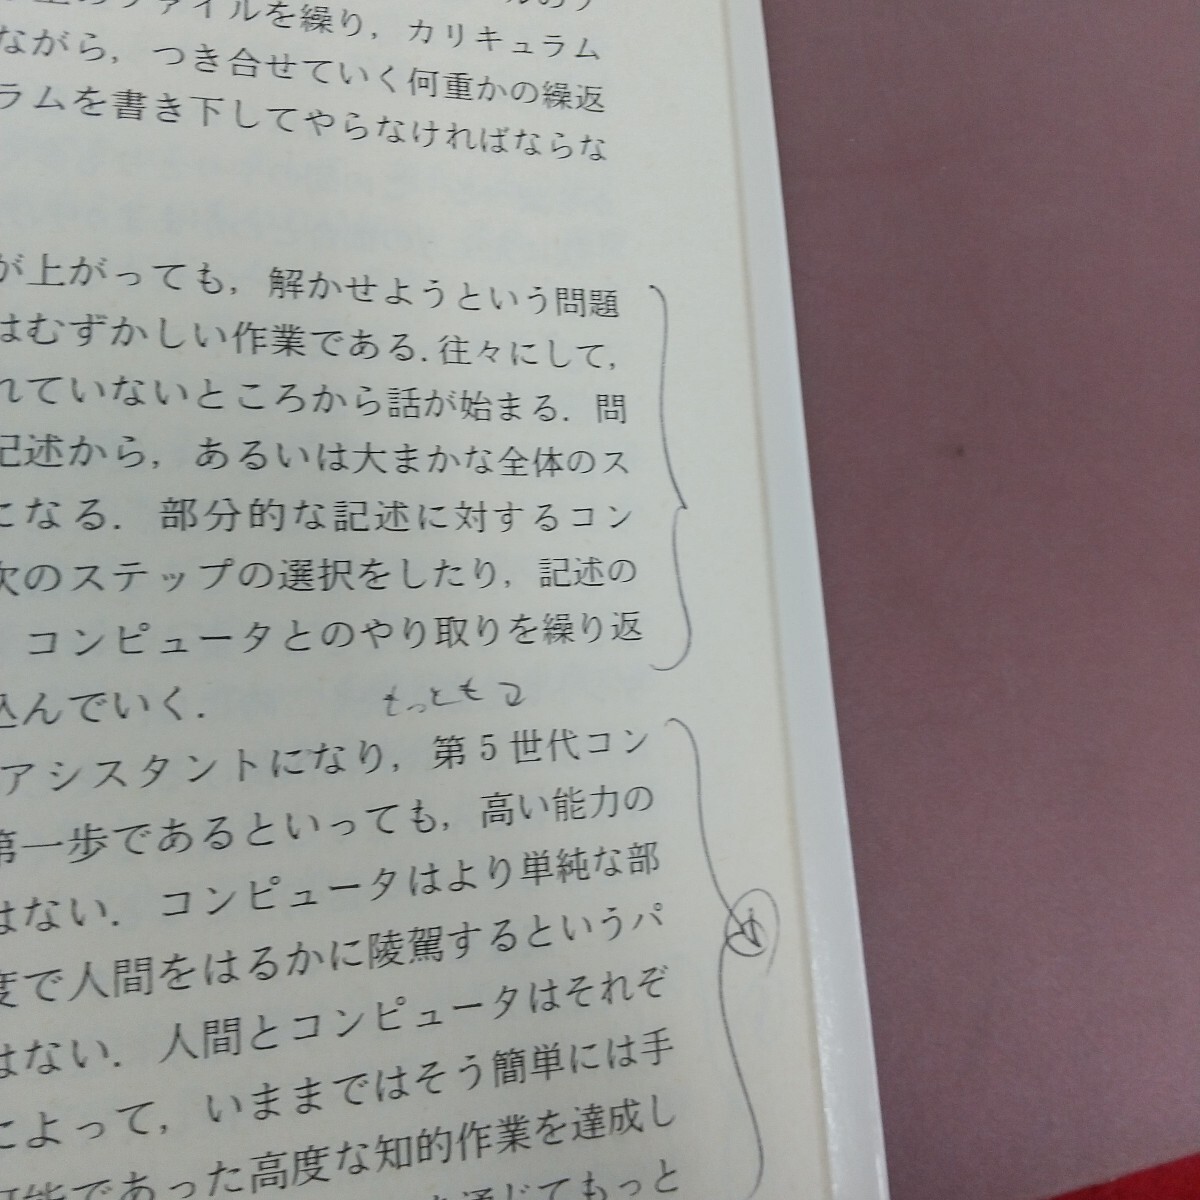 ファイルを繰り，カリキュラム
ながら，つき合せていく何重かの繰返
ラムを書き下してやらなければならな
が上がっても，解かせようという問題
はむずかしい作業である．往々にして，
れていないところから話が始まる．問
記述から，あるいは大まかな全体のス
になる．部分的な記述に対するコン
次のステップの選択をしたり，記述の
コンピュータとのやり取りを繰り返
込んでいく．
もっとも
アシスタントになり，第5世代コン
第一歩であるといっても，高い能力の
はない．コンピュータはより単純な部
度で人間をはるかに陵駕するというパ
はない．人間とコンピュータはそれぞ
によって，いままではそう簡単には手
可能であった高度な知的作業を達成し
通じてもっと